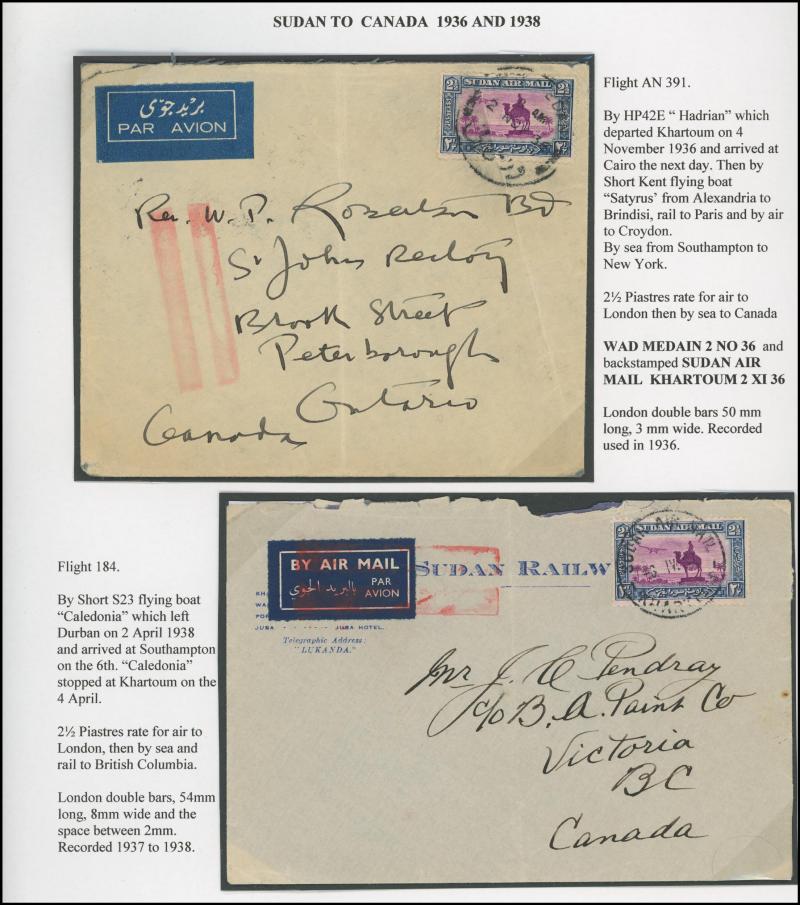 SUDAN TO CANADA 1936 AND 1938
بريد جوي
PAR AVION
SUDAN AIR MAIL
2½
2½
Rev. W. P. Robertson BD
St Johns Rectory
Brook Street
Peterborough
Ontario
Canada
Flight AN 391.
By HP42E “ Hadrian” which
departed Khartoum on 4
November 1936 and arrived at
Cairo the next day. Then by
Short Kent flying boat
“Satyrus’ from Alexandria to
Brindisi, rail to Paris and by air
to Croydon.
By sea from Southampton to
New York.
2½ Piastres rate for air to
London then by sea to Canada
WAD MEDAIN 2 NO 36 and
backstamped SUDAN AIR
MAIL KHARTOUM 2 XI 36
London double bars 50 mm
long, 3 mm wide. Recorded
used in 1936.
Flight 184.
By Short S23 flying boat
“Caledonia” which left
Durban on 2 April 1938
and arrived at Southampton
on the 6th. “Caledonia”
stopped at Khartoum on the
4 April.
2½ Piastres rate for air to
London, then by sea and
rail to British Columbia.
London double bars, 54mm
long, 8mm wide and the
space between 2mm.
Recorded 1937 to 1938.
BY AIR MAIL
بالبريد الجوي
PAR
AVION
SUDAN RAILW
JUBA - JUBA HOTEL.
Telegraphic Address:
"LUKANDA."
SUDAN AIR MAIL
2½
2½
Mr J. C Pendray
c/o B. A. Paint Co
Victoria
BC
Canada